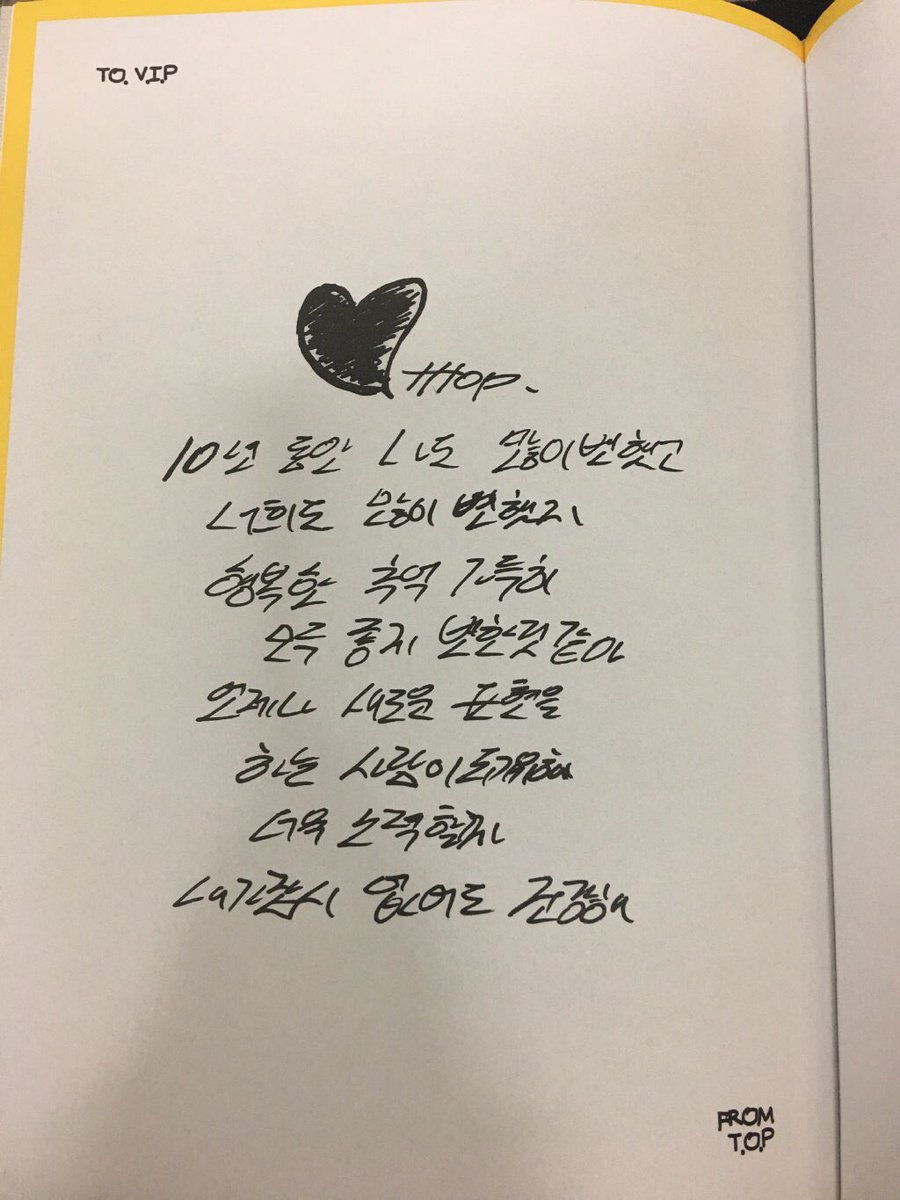 TO. V.I.P
ttt top.
10년 동안 나도 많이 변했고
너희도 많이 변했지
행복한 추억 가득히
모두 좋게 변한것 같아
언제나 새로운 표현을
하는 사람이 되기위해
더욱 노력할께
내가 잠시 없어도 건강해
FROM
T.O.P